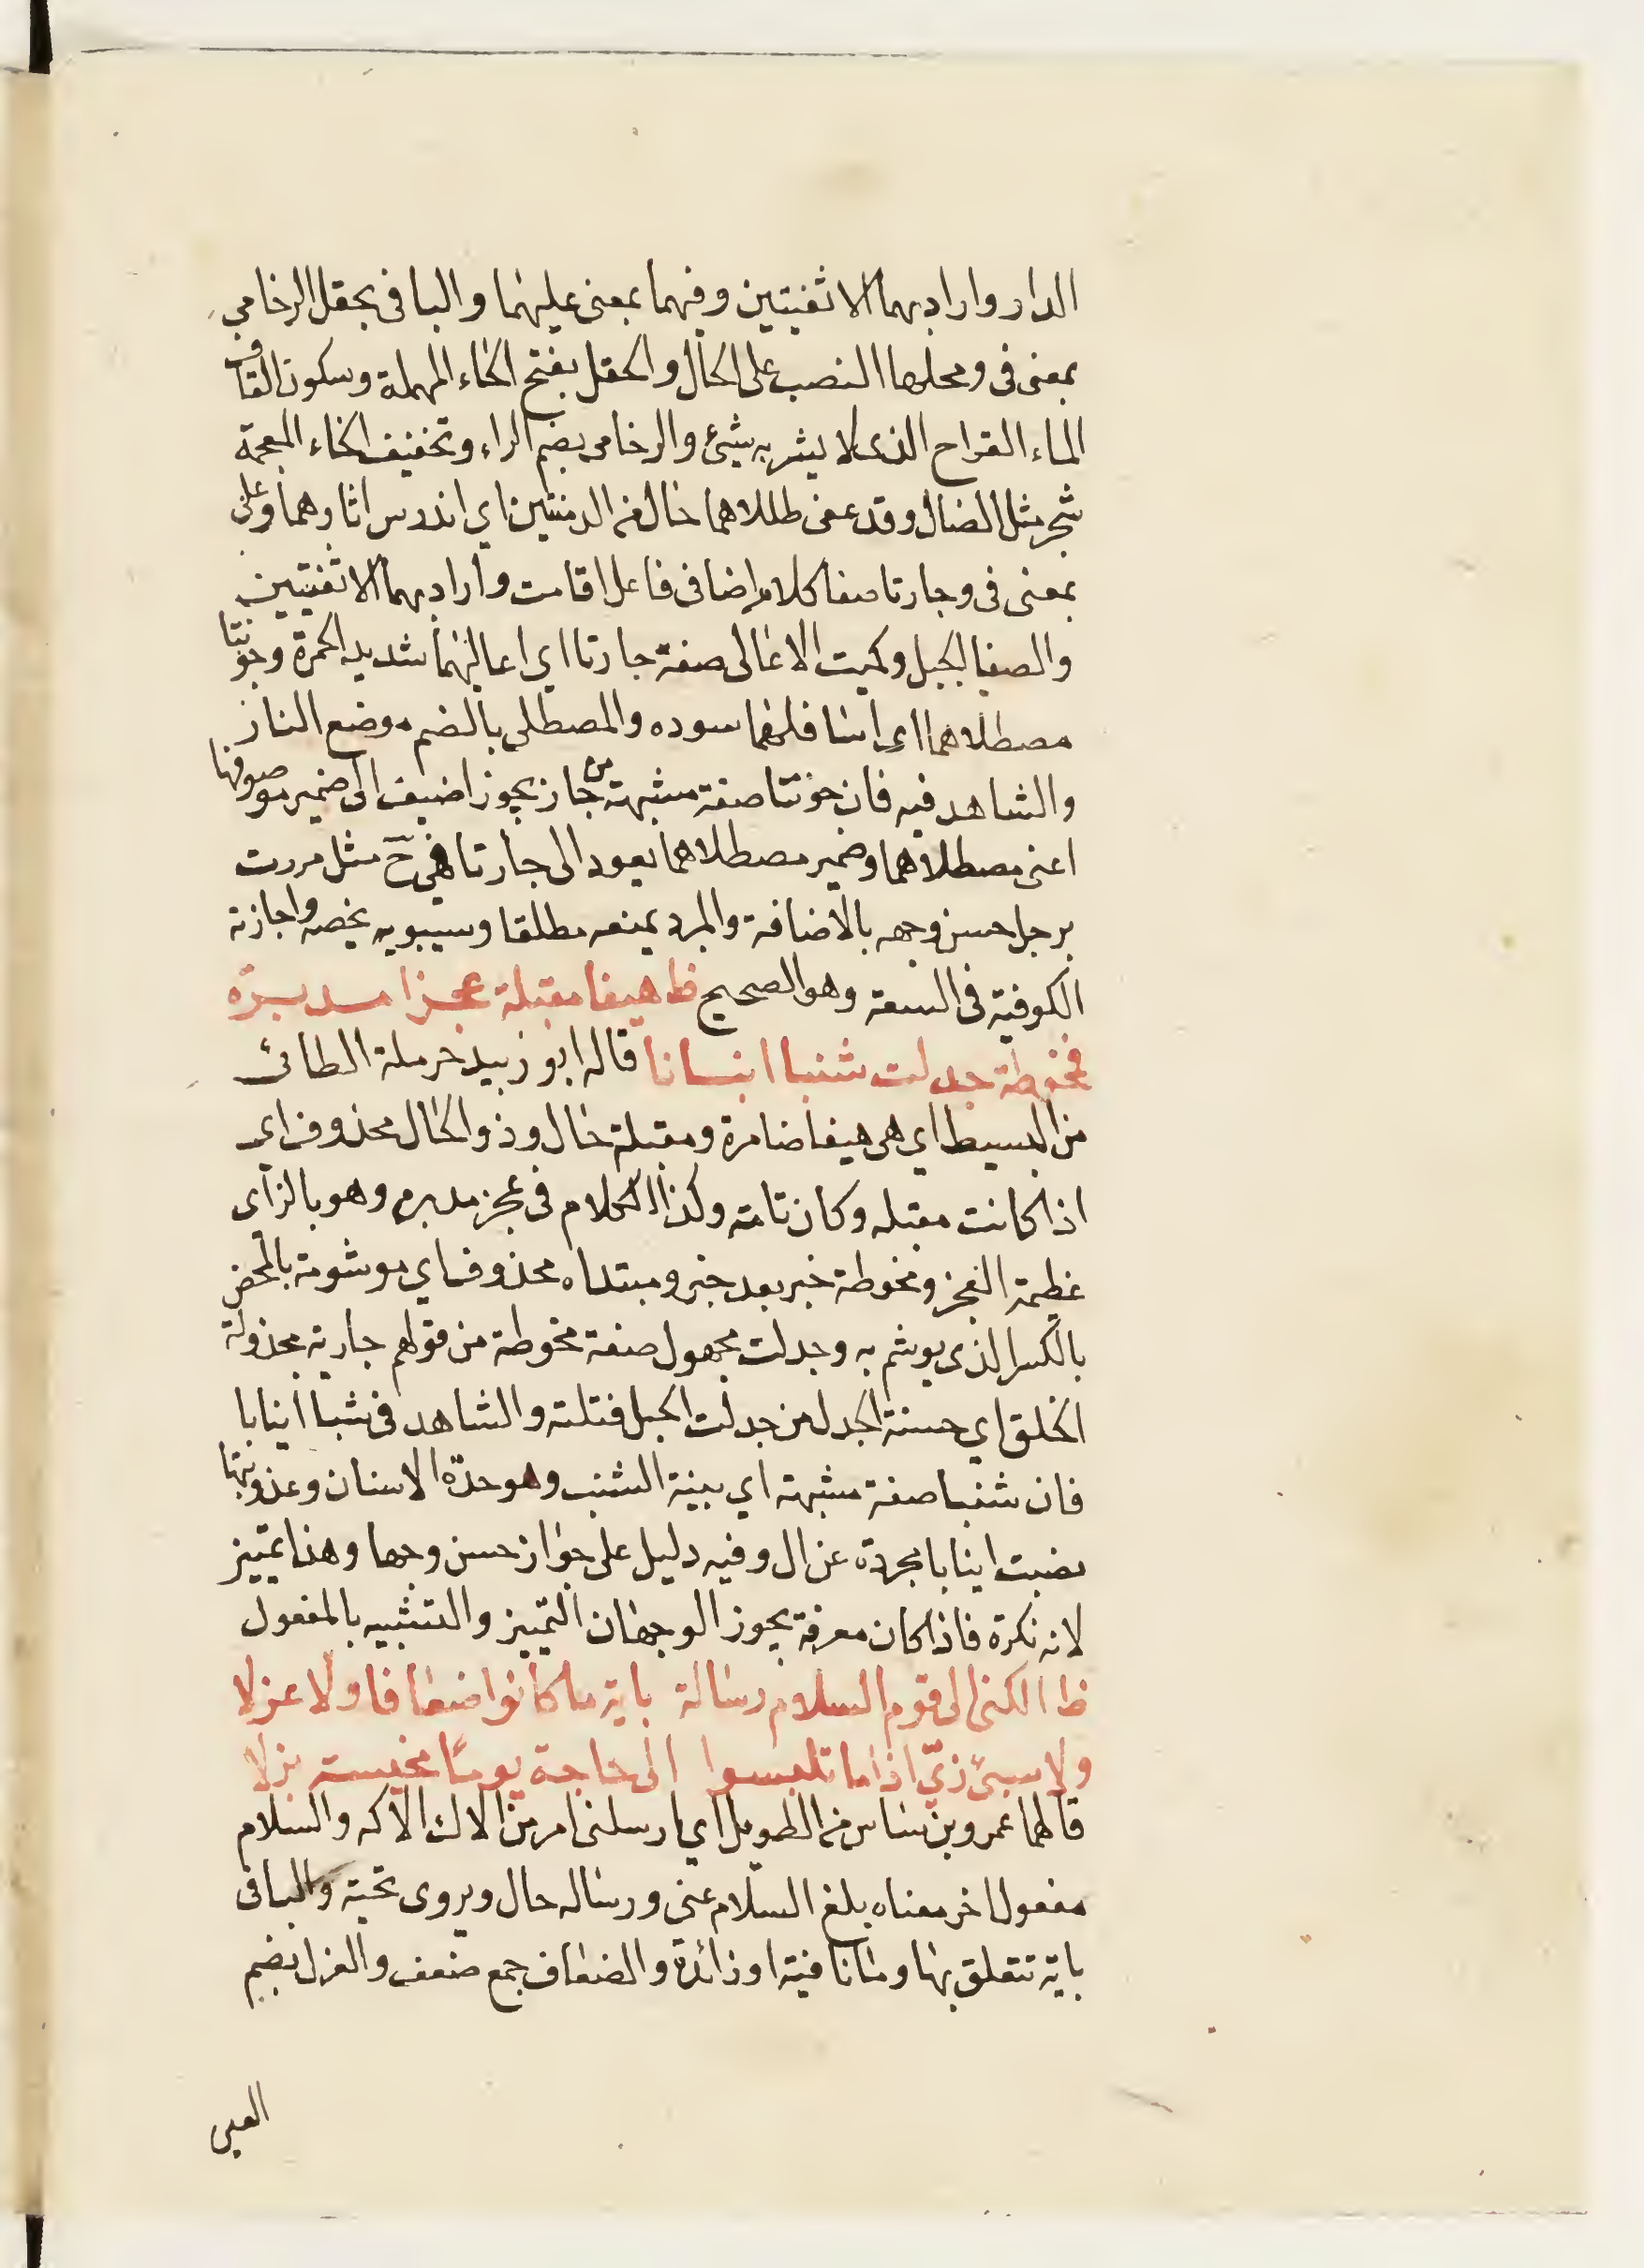 الدار واراد بهما الاثفيتين وفيهما بمعنى عليهما والبا في بحقل الرخامي
بمعنى في ومحلها النصب على الحال والحقل بفتح الحاء المهملة وسكون القاف
الماء القراح الذى لا يشربه شئ والرخامى بضم الراء وتخفيف الخاء المعجمة
شجر مثل الضال وقد عفى طللاهما حال من الدمنتين اي اندرس اثارهما وعلى
بمعنى في وجارتا صفا كلام اضافى فاعل اقامت واراد بهما الاثفيتين
والصفا الجبل وكميت الاعالى صفة جارتا اي اعاليهما شديد الحمرة وجونتا
مصطلاهما اي اسافلهما سوده والمصطلى بالضم موضع النار
والشاهد فيه فان جونتا صفة مشبهة من جاز يجوز اضيف الى ضمير موصوفها
اعنى مصطلاهما وضمير مصطلاهما يعود الى جارتا فهي ح مثل مررت
برجل حسن وجهه بالاضافة والمبرد يمنعه مطلقا وسيبويه يخصه واجازته
الكوفية في السعة وهو الصحيح ظ هيفا مقبلة عجزا مدبرة
مخوطة جدلت شنبا انسانا قاله ابو زبيد حرملة الطائى
من البسيط اي هي هيفا ضامرة ومقبلة حال وذو الحال محذوف اي
اذا كانت مقبله وكان تامة وكذا الكلام في عجز مدبره وهو بالزاى
عظيمة العجز ومخوطة خبر بعد خبر ومبتداه محذوف اي موشومة بالمحض
بالكسر الذى يوشم به وجدلت مجهول صفة مخوطة من قولهم جارية مجدولة
الخلق اي حسنة الجدل من جدلت الحبل فتلته والشاهد في شنبا انيابا
فان شنبا صفة مشبهة اي بينة الشنب وهو حدة الاسنان وعذوبتها
نصبت انيابا مجردة عن ال وفيه دليل على جواز حسن وجها وهذا تمييز
لانه نكرة فاذا كان معرفة يجوز الوجهان التمييز والتشبيه بالمفعول
ظ الكنى الى قوم السلام رسالة باية ما كانوا ضعافا ولا عزلا
ولا سيئ زي اذا ما تلبسوا الى حاجة يوما مخيسة بزلا
قالهما عمرو بن شاس من الطويل اي ارسلنى امر من الالك الاكه والسلام
مفعول اخر معناه بلغ السلام عنى ورساله حال ويروى تحية والبا فى
باية تتعلق بها وما نافية او زائدة والضعاف جمع ضعف والعزل بضم
العين